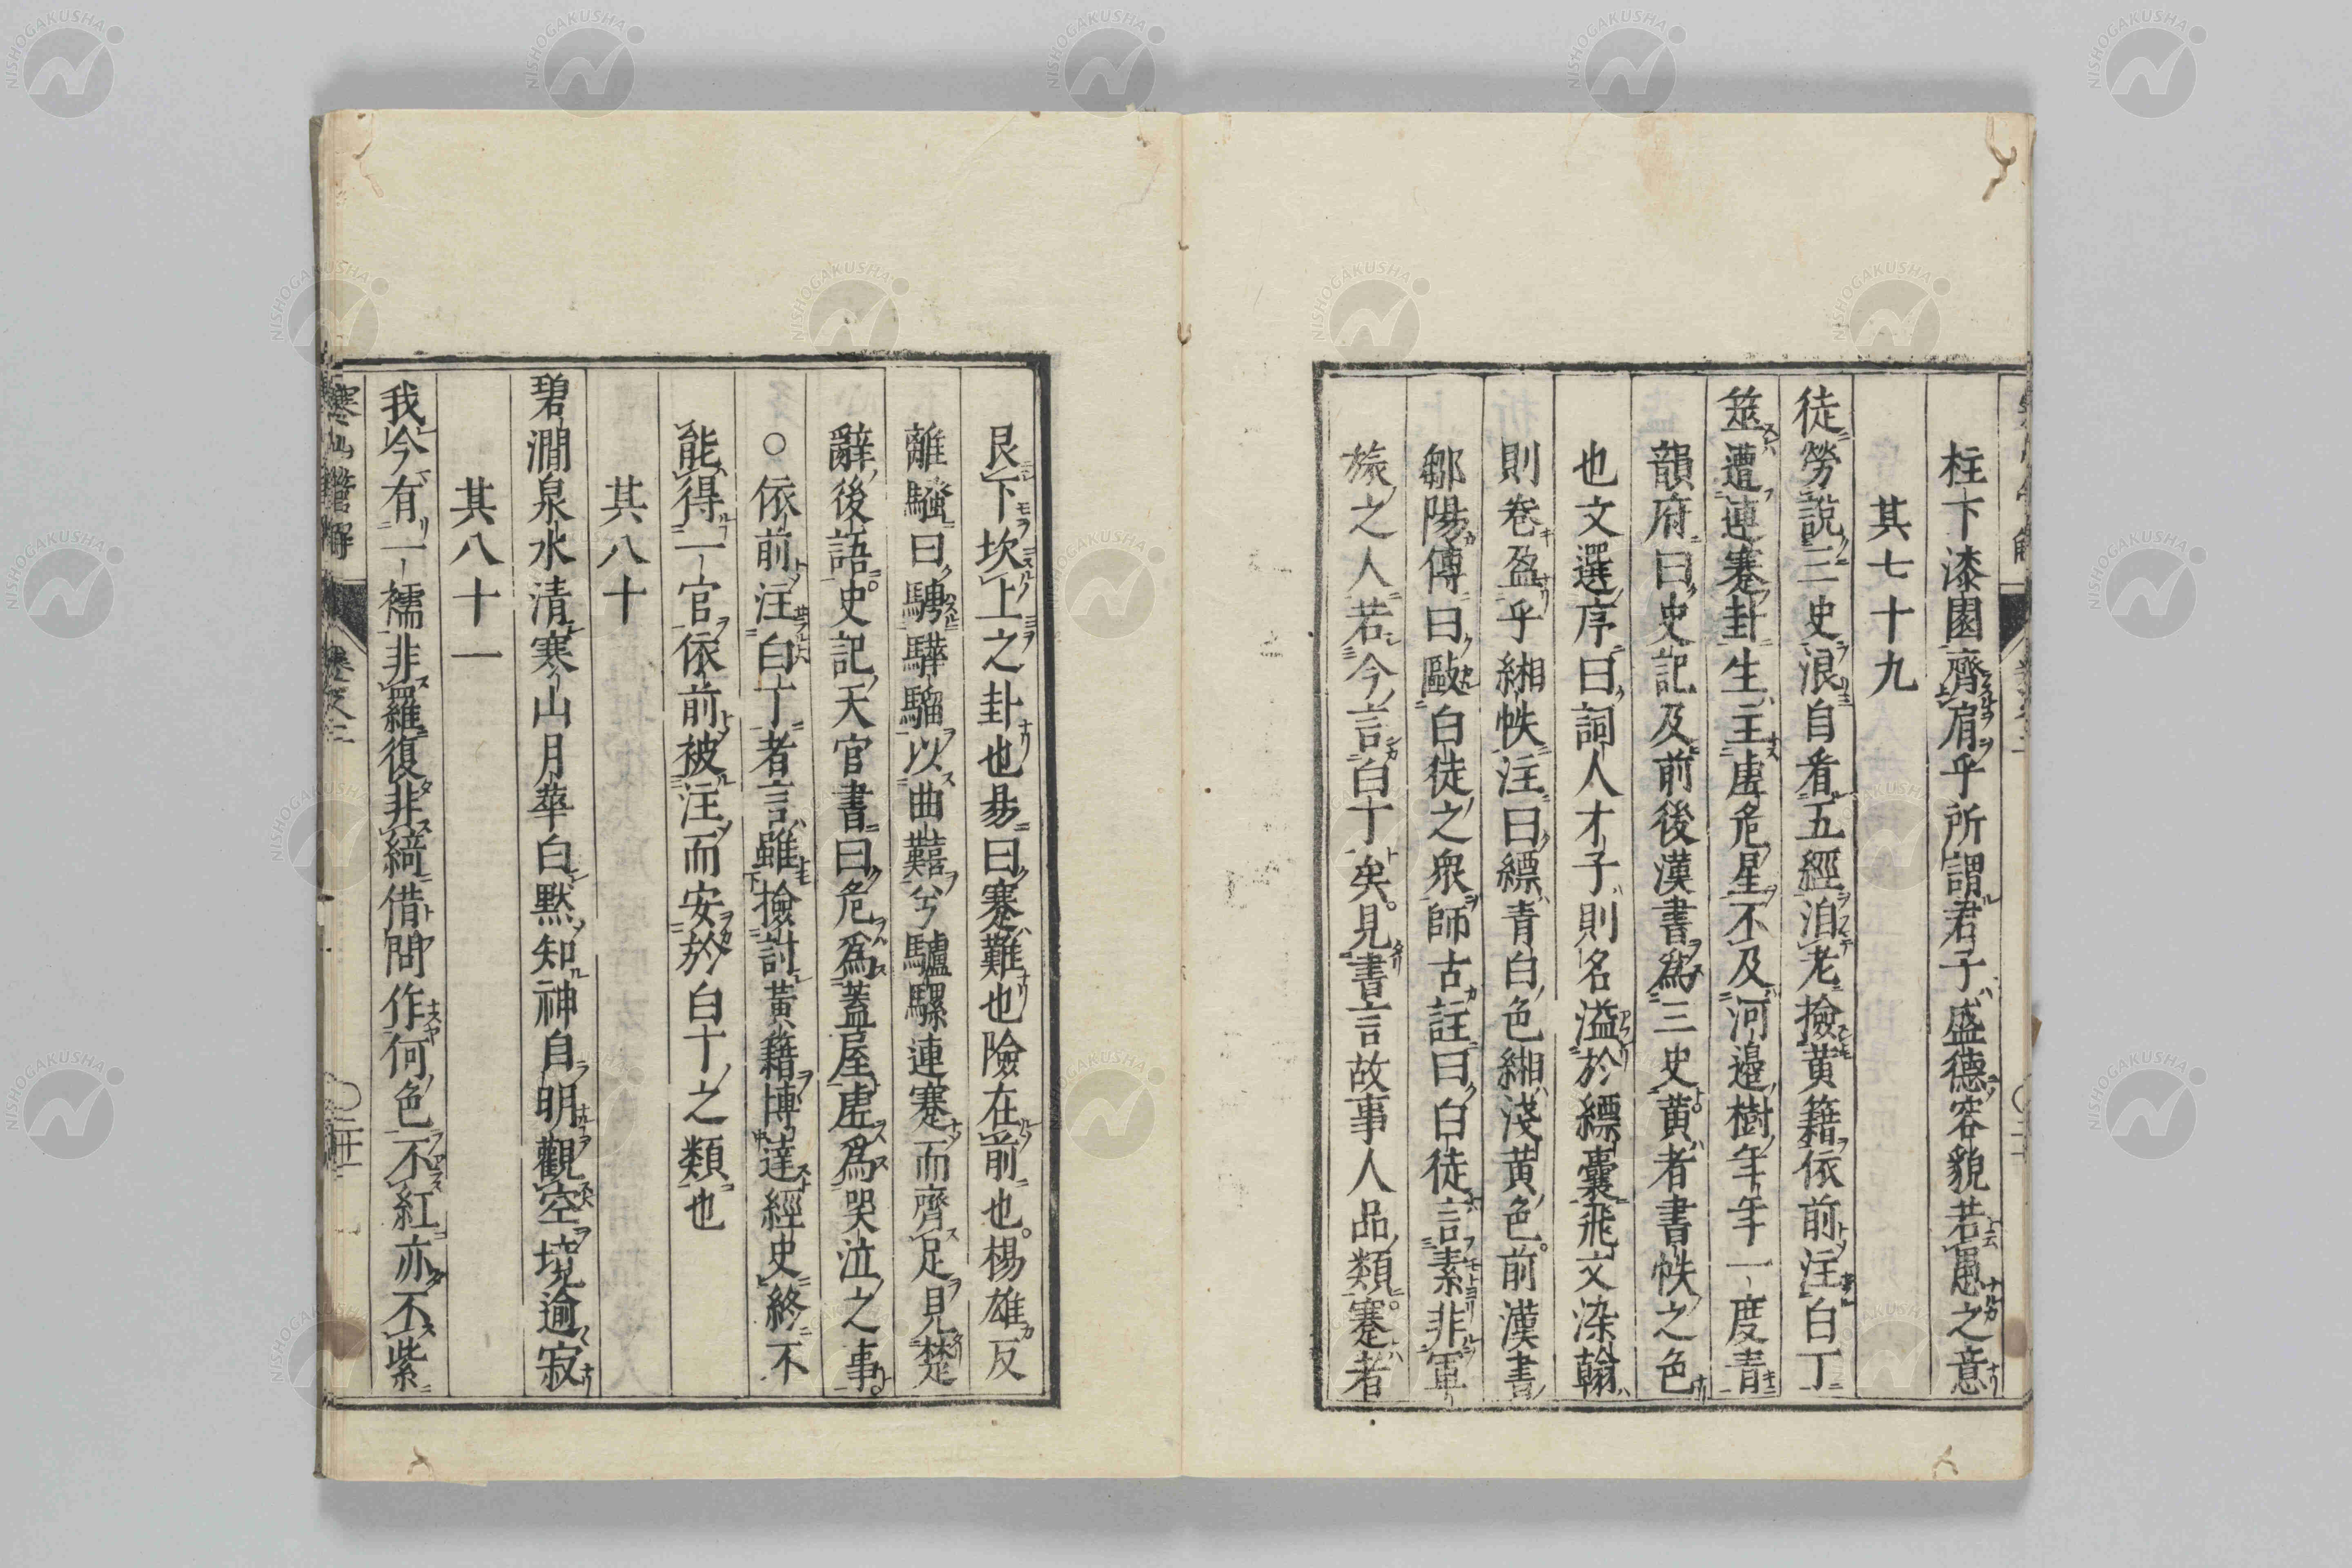 柱下漆園齊肩乎所謂君子盛德容貌若愚之意
其七十九
徒勞說三史浪自看五經洎老撿黃籍依前注白丁
筮遭連蹇卦生主虛危星不及河邊樹年年一度青
韻府曰史記及前後漢書爲三史黃者書帙之色
也文選序曰詞人才子則名溢於縹囊飛文染翰
則卷盈乎緗帙注曰縹青白色緗淺黃色前漢書
鄒陽傳曰敺白徒之衆師古註曰白徒言素非軍
旅之人若今言白丁矣見書言故事人品類蹇者
艮下坎上之卦也易曰蹇難也險在前也楊雄反
離騷曰騁驊騮以曲囏兮驢騾連蹇而齊足見楚
辭後語史記天官書曰危爲蓋屋虛爲哭泣之事
○依前注白丁者言雖撿討黃籍博達經史終不
能得一官依前被注而安於白丁之類也
其八十
碧澗泉水清寒山月華白默知神自明觀空境逾寂
其八十一
我今有一襦非羅復非綺借問作何色不紅亦不紫
寒山詩管解
卷之二
NISHOGAKUSHA